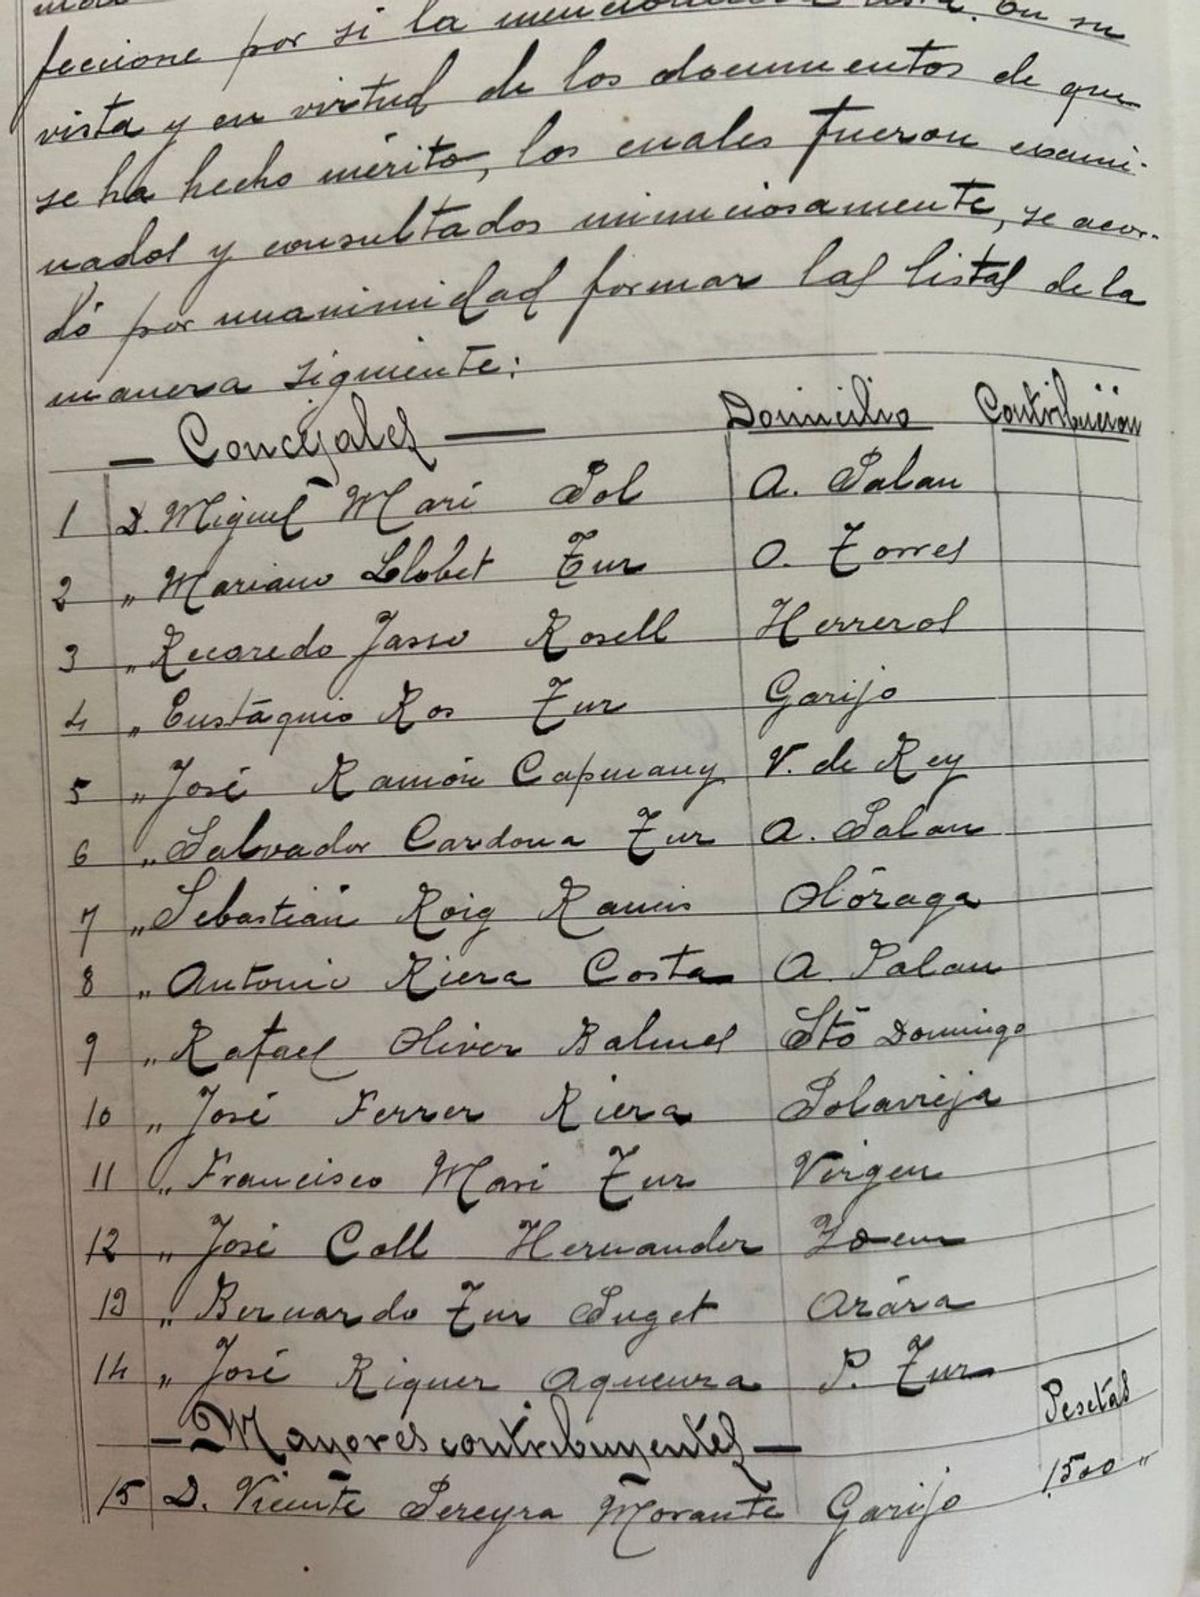 feccione por si la mencionada lista. En su
vista y en virtud de los documentos de que
se ha hecho mérito, los cuales fueron exami-
nados y consultados minuciosamente, se acor-
dó por unanimidad formar las listas de la
manera siguiente:
— Concejales — Domicilio Contribución
1 D. Miguel Mari Sol A. Palau
2 " Mariano Llobet Tur O. Torres
3 " Recaredo Jasso Rosell Herreros
4 " Eustáquio Ros Tur Garijo
5 " José Ramón Capmany V. de Rey
6 " Salvador Cardona Tur A. Palau
7 " Sebastián Roig Ramis Olózaga
8 " Antonio Riera Costa A. Palau
9 " Rafael Oliver Balmes Stō Domingo
10 " José Ferrer Riera Polavieja
11 " Francisco Mari Tur Virgen
12 " José Coll Hernander Idem
13 " Bernardo Tur Puget Azára
14 " José Riquer Aquenza P. Tur
— Mayores contribuyentes — Pesetas
15 D. Vicente Pereyra Morante Garijo 1500 "